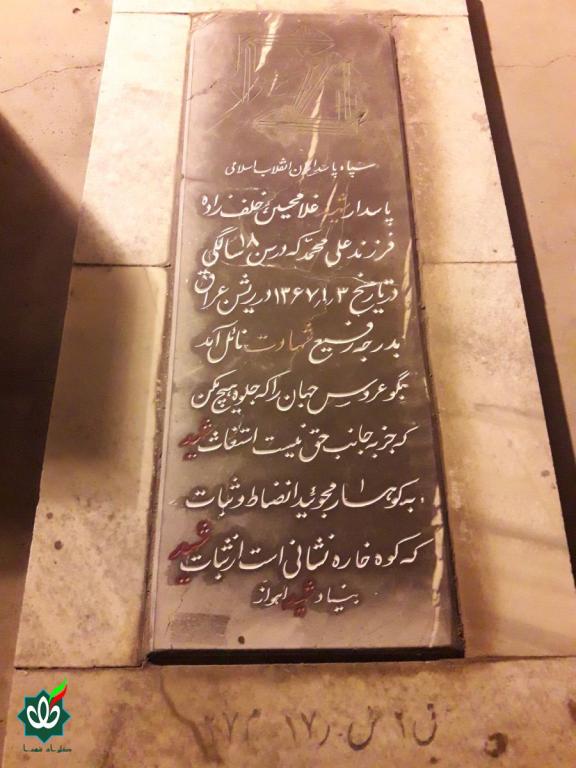 سپاه پاسداران انقلاب اسلامی
پاسدار شهید غلامحسین خلف زاده
فرزند علی محمد که در سن ۱۸ سالگی
در تاریخ ۱۳۶۷/۱/۳ در ریشن عراق
بدرجه رفیع شهادت نائل آمد
بگو عروس جهان را که جلوه هیچ مکن
که جز به جانب حق نیست التفات شهید
به کوهسار مجوئید انضباط و ثبات
که کوه خاره نشانی است از ثبات شهید
بنیاد شهید اهواز
گلزار شهدا